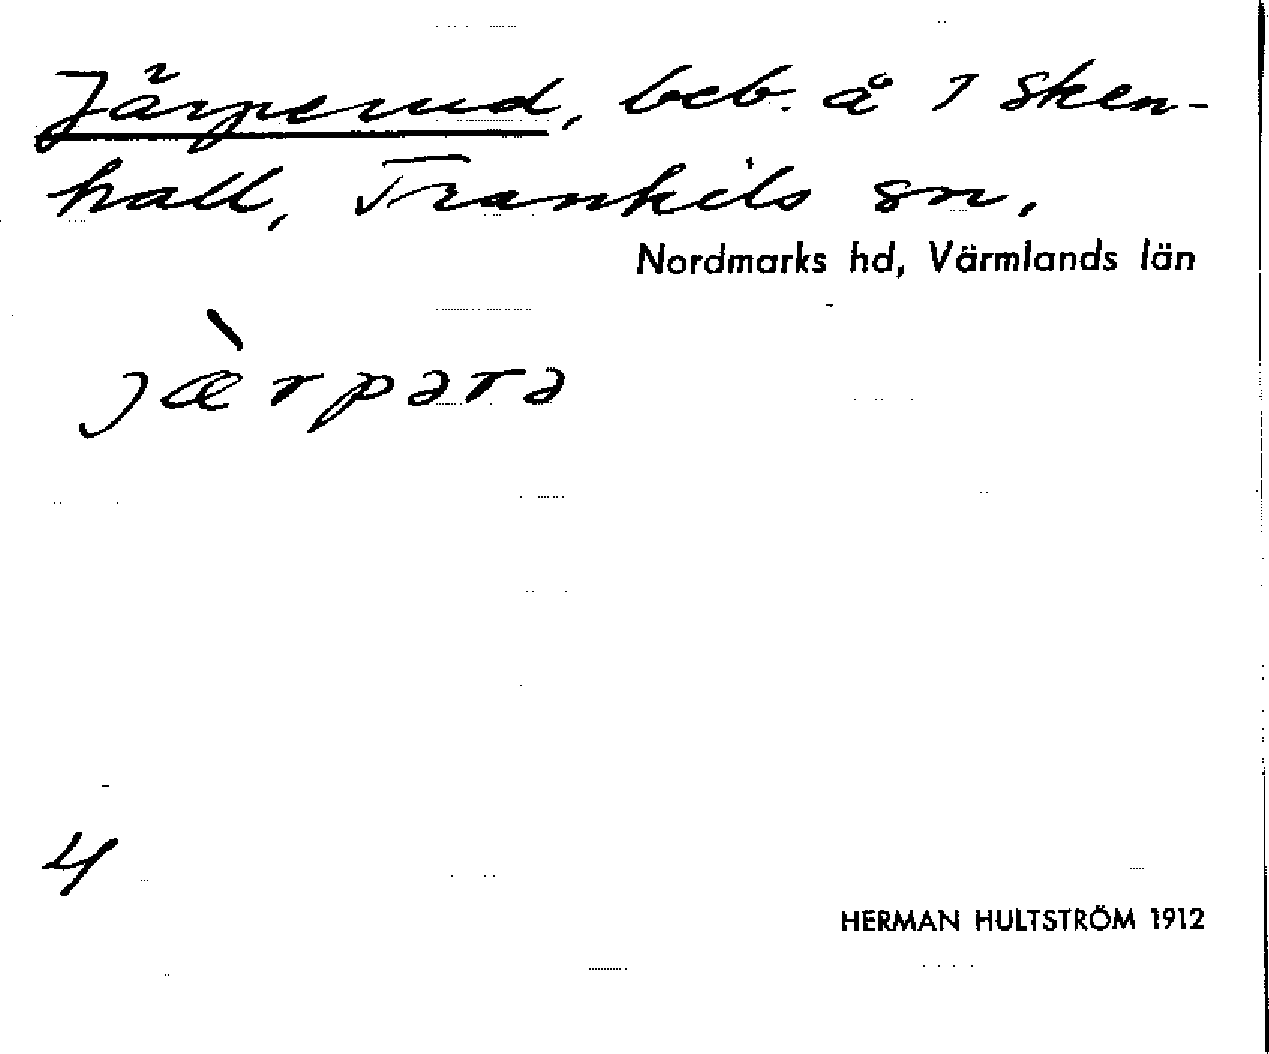 Järperud, beb. å 1 Sken-
hall, Trankils sn,
Nordmarks hd, Värmlands län
jæ̀rpərə
4
HERMAN HULTSTRÖM 1912